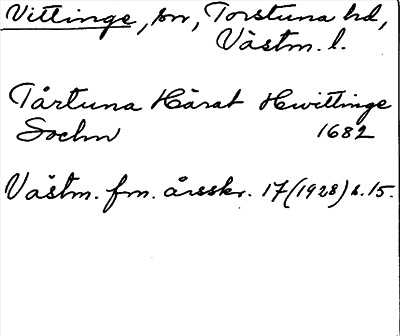 Vittinge, sn, Torstuna hd,
Västm. l.
Tårtuna Härat Hwittinge
Sochn 1682
Västm. fm. årsskr. 17 (1928) s. 15.